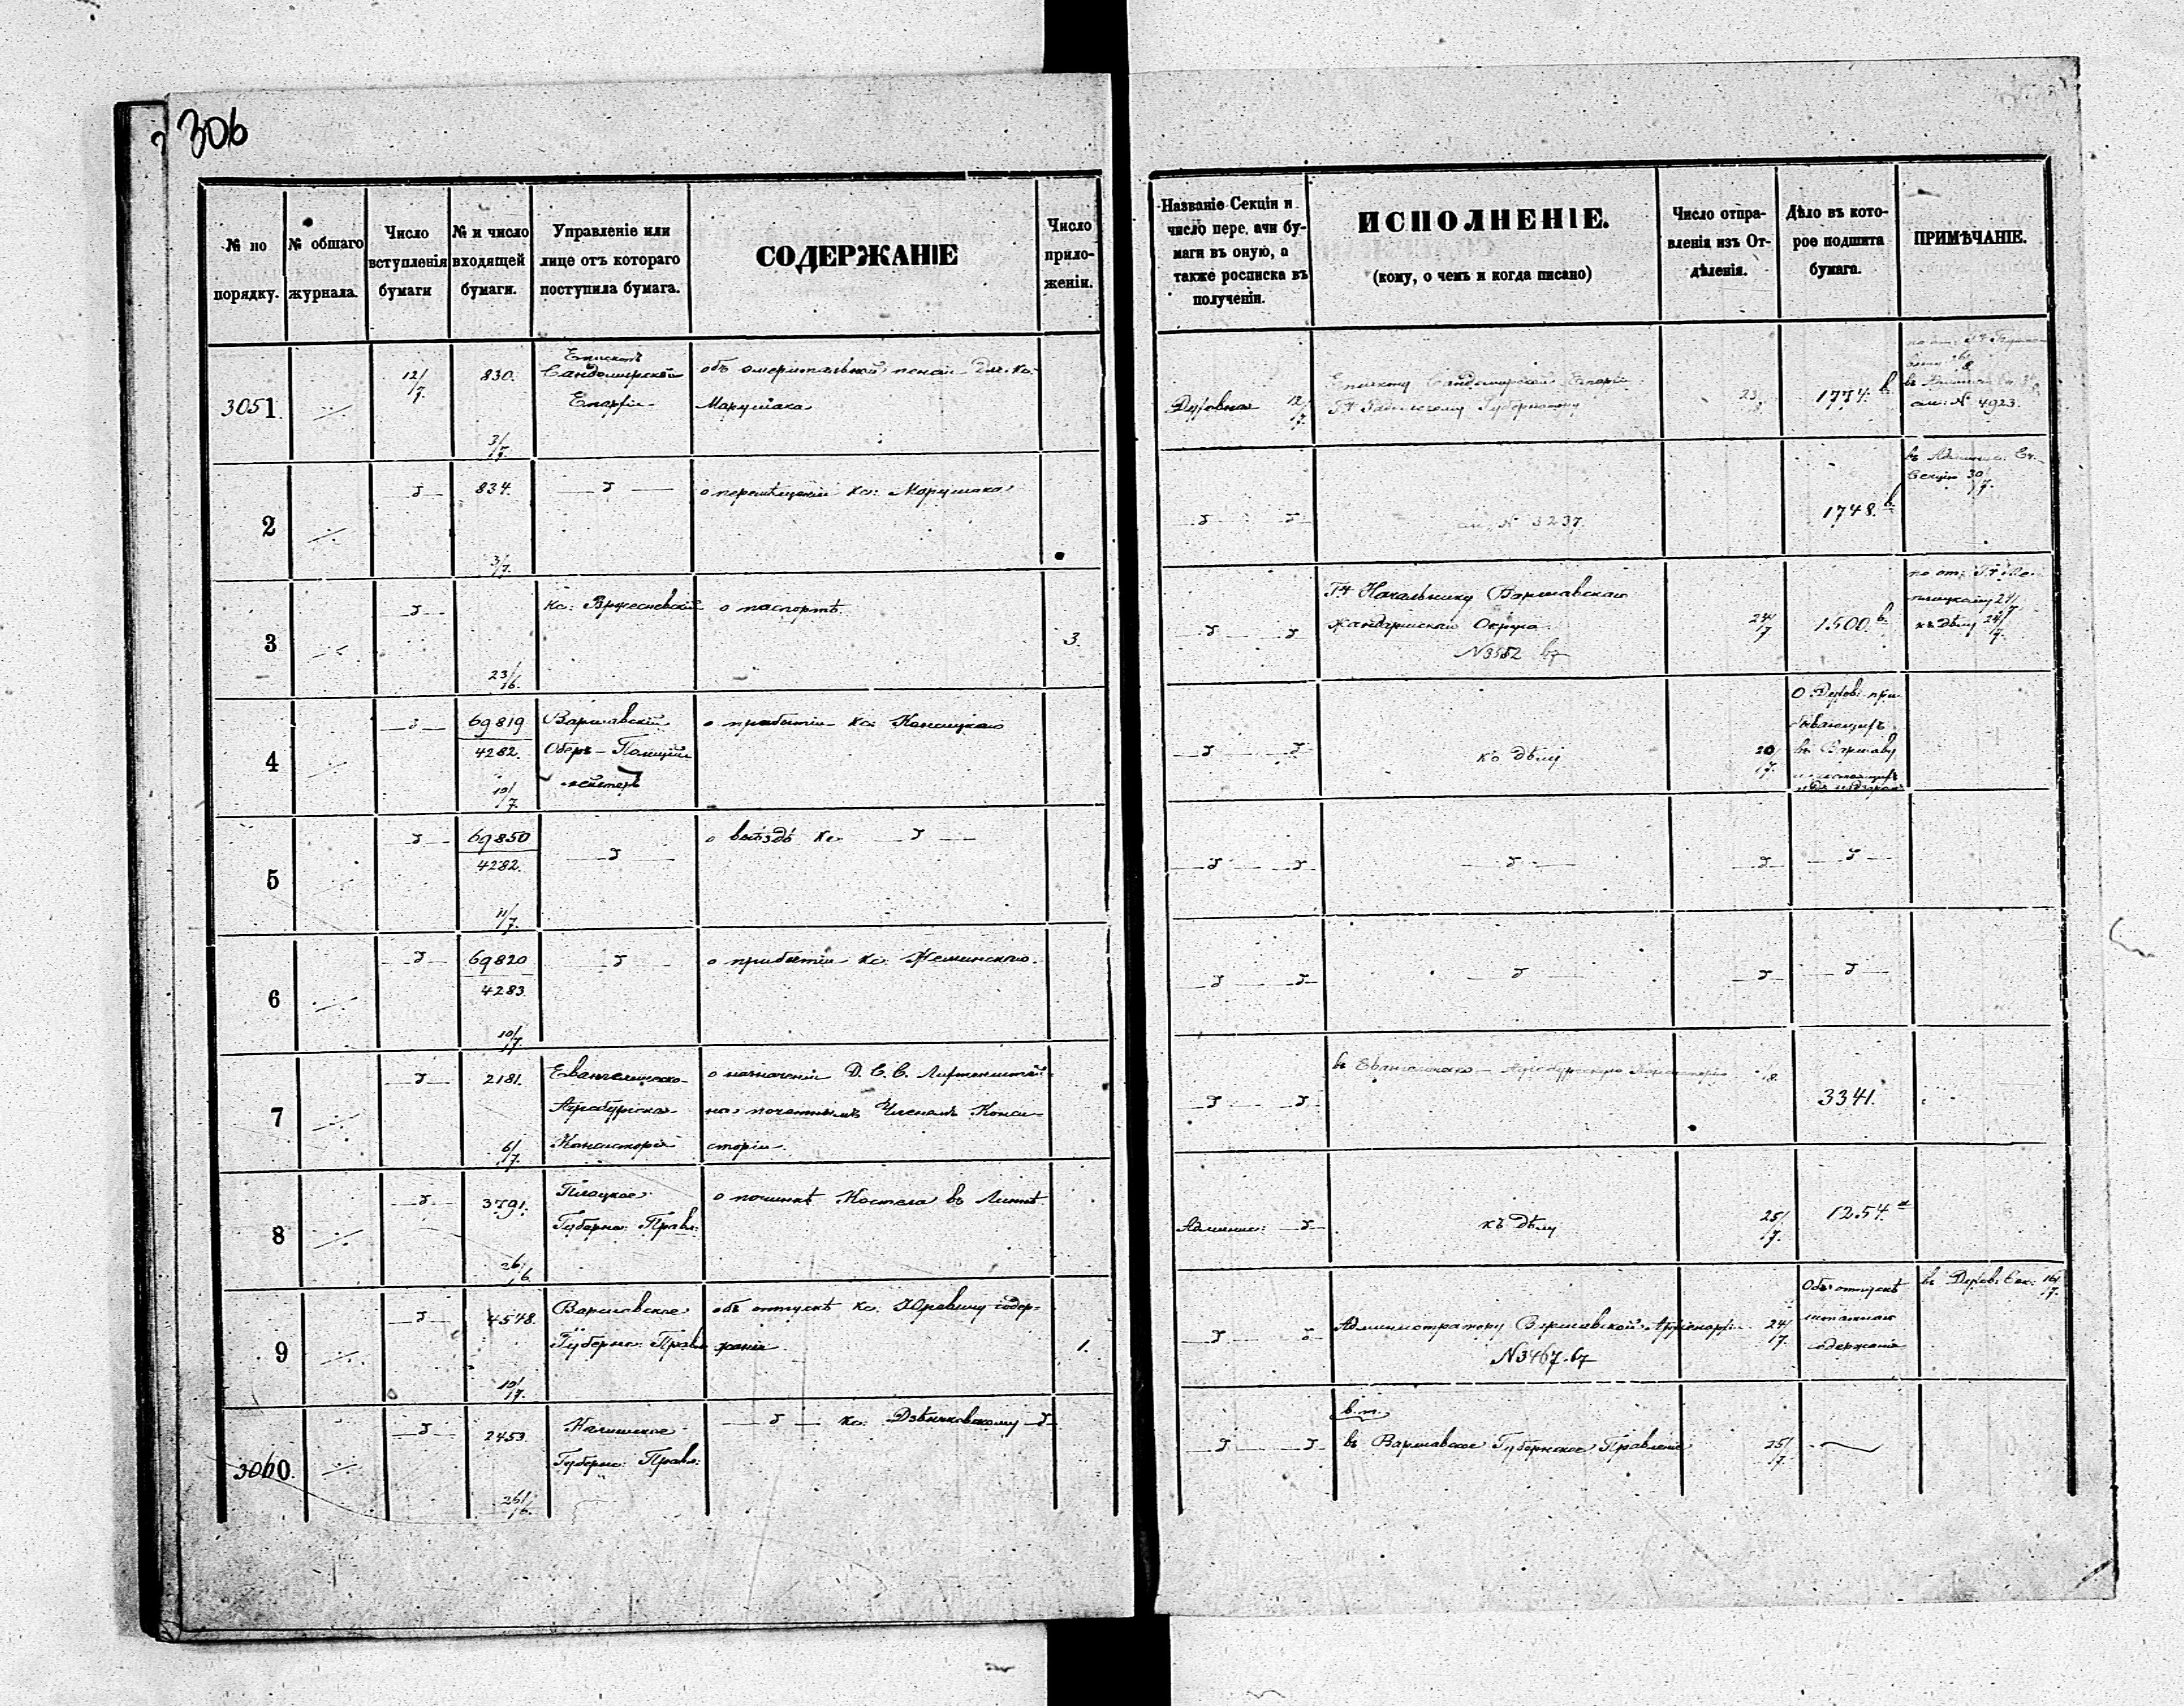 306
№ по порядку.
№ общаго журнала.
Число вступленія бумаги
№ и число входящей бумаги.
Управленіе или лице отъ котораго поступила бумага.
СОДЕРЖАНІЕ
Число прило- женіи.
Названіе Секціи и число пере,ачи бу- маги въ оную, а также росписка въ полученіи.
ИСПОЛНЕНІЕ.
(кому, о чемъ и когда писано)
Число отпра- вленія изъ От- дѣленія.
Дѣло въ кото- рое подшита бумага.
ПРИМѢЧАНІЕ.
3051.
12/7.
830.
3/7.
Епископъ
Сандомирской
Епархіи
объ эмеритальной пенсіи для Кс:
Марушака
Духовная 12/7.
Епископу Сандомирской Епархіи
Гну Радомскому Губернатору
23/8.
1774. в
4923.
2
834.
3/7.
о перемѣщеніи Кс: Марушака
№ 3237.
1748. в
въ Админис: Ек.
Секцію 30/7.
3
23/6.
Кс: Вржесневскій
о паспортѣ
3.
Гну Начальнику Варшавскаго
Жандармскаго Округа
№ 3552 67
24/7
1500. в
къ дѣлу 24/7.
4
69819
4282.
10/7.
Варшавскій
Оберъ-Полицій-
мейстеръ
о прибытіи Кс:
къ дѣлу
20/7.
О Духов: при-
бывающихъ
въ Варшаву
5
69850
4282.
11/7.
о выѣздѣ Кс:
6
69820
4283.
10/7.
о прибытіи Кс: Жеминскаго.
7
2181.
6/7.
Евангелическо-
Аугсбургская
Консисторія
о назначеніи Д. С. С. Лихтенштей-
на почетнымъ Членомъ Конси-
сторіи.
въ Евангелическо-Аугсбургскую Консисторію
3341.
8
3791.
26/6.
Плоцкое
Губерн: Правл:
о починкѣ Костела въ Липнѣ
Админис:
къ дѣлу
25/7.
1254. а
9
4548.
10/7.
Варшавское
Губерн: Правл:
объ отпускѣ Кс: Юревичу содер-
жанія.
1.
Администратору Варшавской Архіепархіи
№ 3467-67
24/7.
Объ отпускѣ
штатнаго
содержанія
въ Духов: Сек: 16/7.
3060.
2453.
26/6.
Калишское
Губерн: Правл:
Кс:
в. т.
въ Варшавское Губернское Правленіе
25/7.